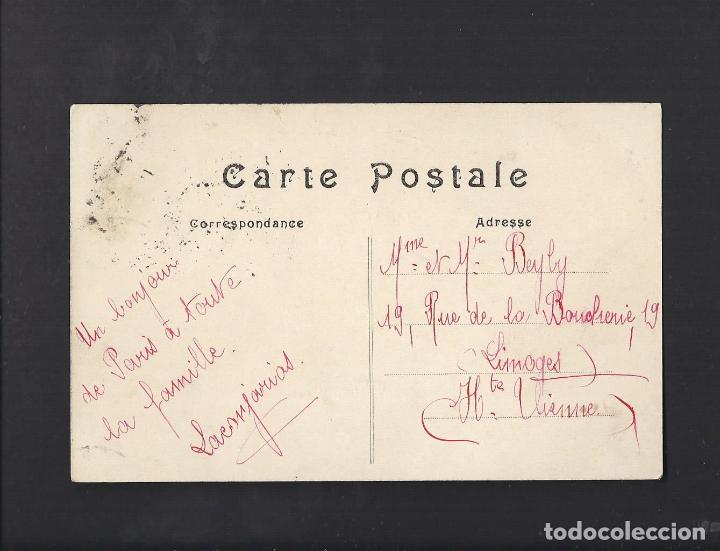 Carte Postale
Correspondance
Adresse
Un bonjour
de Paris à toute
la famille.
Mme et Mr Beyly
19, Rue de la Boucherie, 19
(Limoges)
(Hte Vienne)
todocoleccion